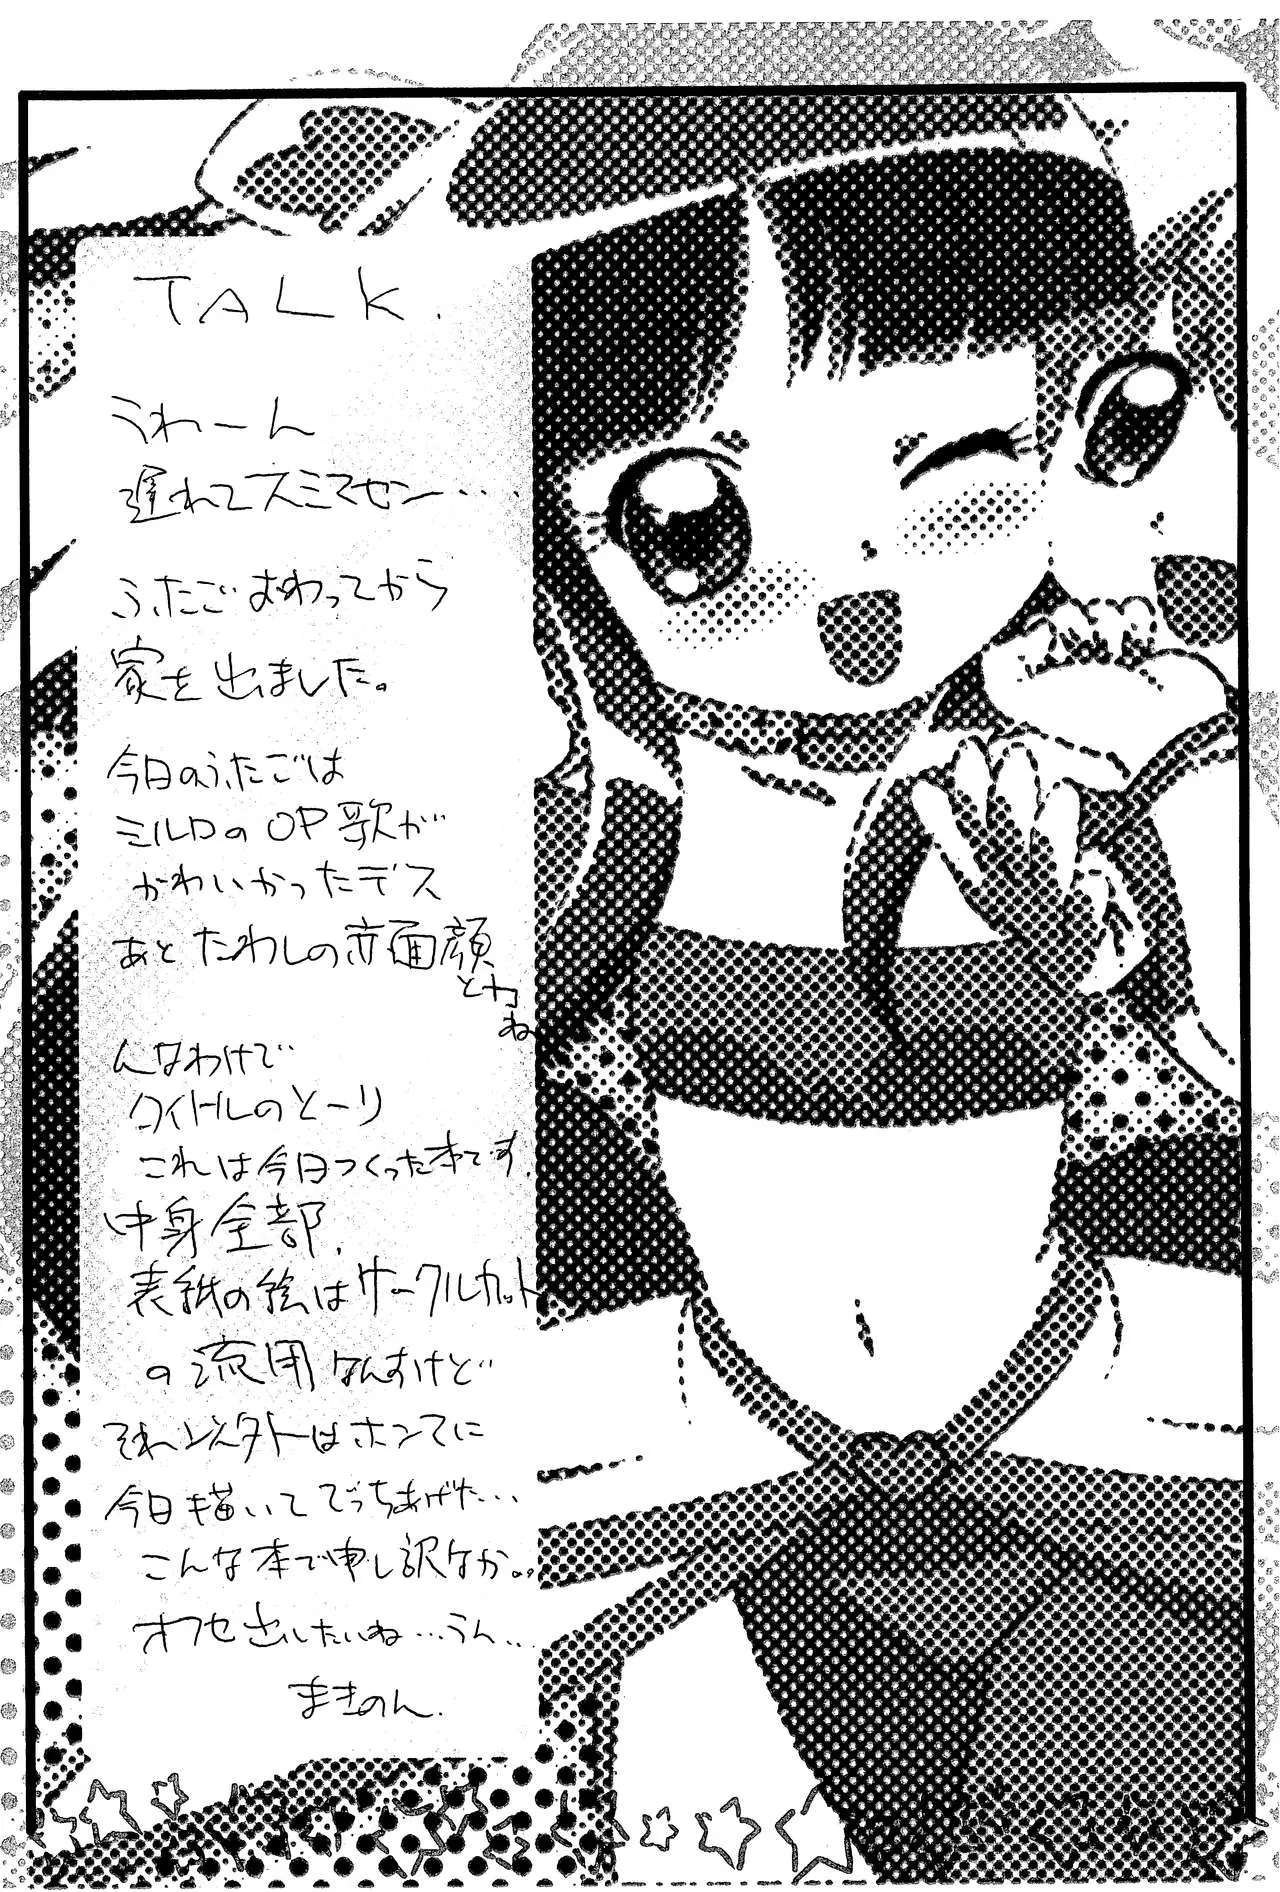 TALK.
うわーん
遅れてスミマセン・・・
ふたごおわってから
家を出ました。
今日のふたごは
ミルロのOP歌が
かわいかったデス
あとたわしの赤面顔
とかね
んなわけで
タイトルのとーり
これは今日つくった本です.
中身全部.
表紙の絵はサークルカット
の流用なんすけど
それ以外はホンマに
今日描いてでっちあげた・・・
こんな本で申し訳なか。。
オフセ出したいね・・・うん・・
まきのん.